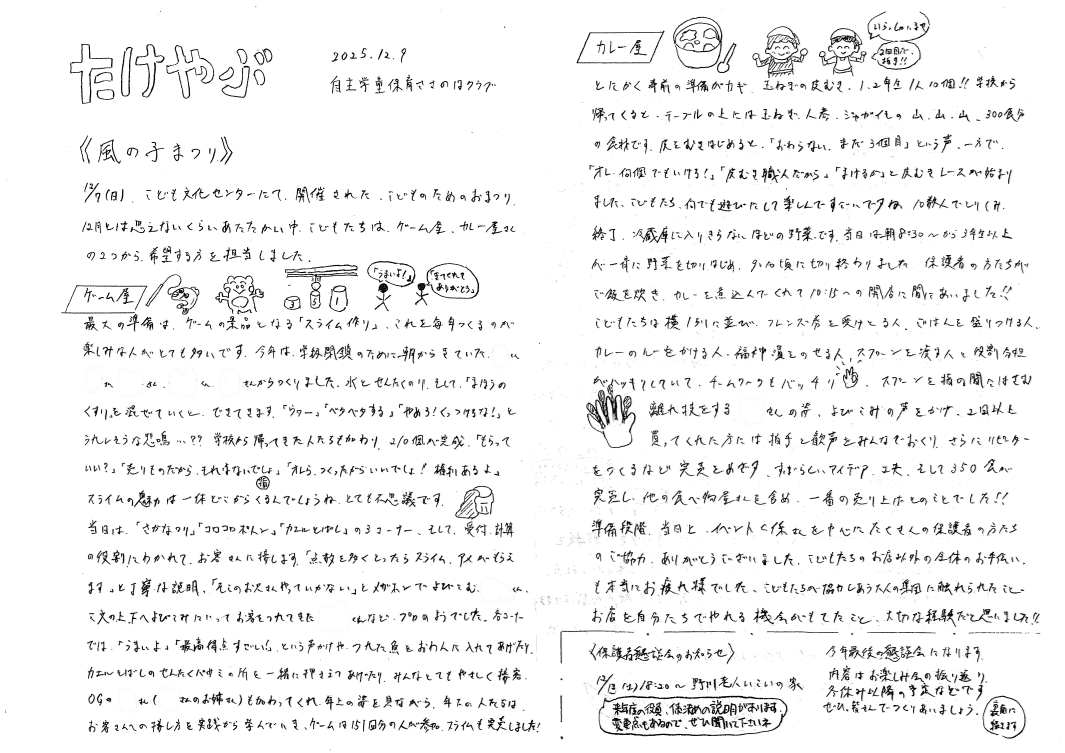 たけやぶ
2025.12.9
自主学童保育ささのはクラブ
《風の子まつり》
12/7(日)、こども文化センターにて、開催された、こどものためのおまつり。
12月とは思えないくらいあたたかい中、こどもたちは、ゲーム屋、カレー屋さん
の2つから、希望する方を担当しました。
ゲーム屋
「うまいよ!」
「きてくれて
ありがとう」
最大の準備は、ゲームの景品となる「スライム作り」。これを毎年つくるのが
楽しみな人がとても多いです。今年は、学級閉鎖のために朝からきていた、 くん
くん、 さんからつくりました。水とせんたくのり、そして、「まほうの
くすり」を混ぜていくと、できてきます。「ウワー」「ベタベタする」「やめろ!くっつけるな!」と
うれしそうな悲鳴…?? 学校から帰ってきた人たちも加わり、210個が完成。「もらって
いい?」「売りものだから、それはないでしょ」「オレら、つくったからいいでしょ!権利あるよ」
スライムの魅力は一体どこからくるんでしょうね、とても不思議です。
当日は、「さかなつり」「コロコロポトン」「カエルとばし」の3コーナー、そして、受付、計算
の役割にわかれて、お客さんに接します。「点数を多くとったらスライム、アメがもらえ
ます」と丁寧な説明、「そこのお兄さんやっていかない」とメガホンでよびこむ くん、
二文の上下へよびこみにいってお客をつれてきた くんなど、プロのようでした。各コーナー
では、「うまいよ」「最高得点すごい!」という声かけや、つれた魚をおわんに入れてあげたり、
カエルとばしのせんたくバサミの所を一緒に押さえてあげたり、みんなとてもやさしく接客。
OGの さん( さんのお姉さん)も加わってくれ、年上の姿を見ながら、年下の人たちは、
お客さんへの接し方を実践から学んでいき、ゲームは151回分の人が参加、スライムも完売しました!
カレー屋
いらっしゃいませ
2回目で、
拍手!!
とにかく事前の準備がカギ。玉ねぎの皮むき、1、2年生1人10個!! 学校から
帰ってくると、テーブルの上には玉ねぎ、人参、ジャガイモの山、山、山、300食分
の食材です。皮をむきはじめると、「おわらない、まだ3個目」という声、一方で、
「オレ何個でもいける!」「皮むき職人だから」「まけるか」と皮むきレースが始まり
ました。こどもたち、何でも遊びにして楽しんですごいですね。10数人でとりくみ
終了、冷蔵庫に入りきらないほどの野菜です。当日は朝8:30〜から3年生以上
が一斉に野菜を切りはじめ、9:10頃に切り終わりました。保護者の方たちが
ご飯を炊き、カレーを煮込んでくれて10:15〜の開店に間にあいました!!
こどもたちは横1列に並び、フレンズ券を受けとる人、ごはんを盛りつける人、
カレーのルーをかける人、福神漬をのせる人、スプーンを渡す人と役割分担
がハッキリしていて、チームワークもバッチリ 。スプーンを指の間にはさむ
離れ技をする さんの姿、よびこみの声をかけ、2回以上
買ってくれた方には拍手と歓声をみんなでおくり、さらにリピーター
をつくるなど完売をめざす、すばらしいアイデア、工夫、そして350食が
完売し、他の食べ物屋さんを含め、一番の売り上げとのことでした!!
準備段階、当日と、イベント係さんを中心にたくさんの保護者の方たち
のご協力、ありがとうございました。こどもたちのお店以外の全体のお手伝い
も本当にお疲れ様でした。こどもたちが協力しあう大人の集団に触れられたこと、
お店を自分たちでやれる機会がもてたこと、大切な経験だと思いました!!
〈保護者懇談会のお知らせ〉
12/13(土)18:20〜 野川老人いこいの家
来年度の役員、係決めの説明があります。
変更点もあるので、ぜひ聞いて下さいね
今年最後の懇談会になります。
内容はお楽しみ会の振り返り、
冬休み以降の予定などです
ぜひ、皆さんでつくりあいましょう。
裏面に
続きます